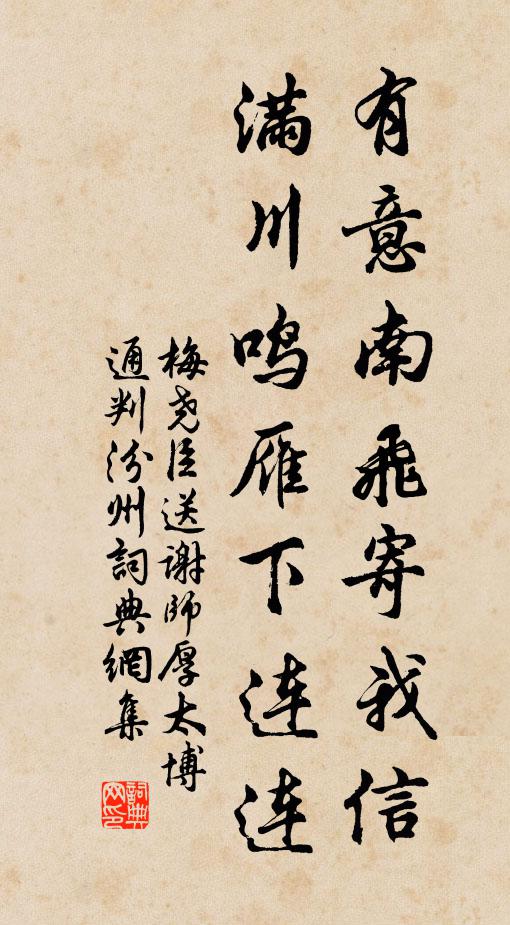 有意南飛寄我信
滿川鸣雁下连连
梅尧臣送谢師厚太博
通判汾州詞典網集
詞典网印